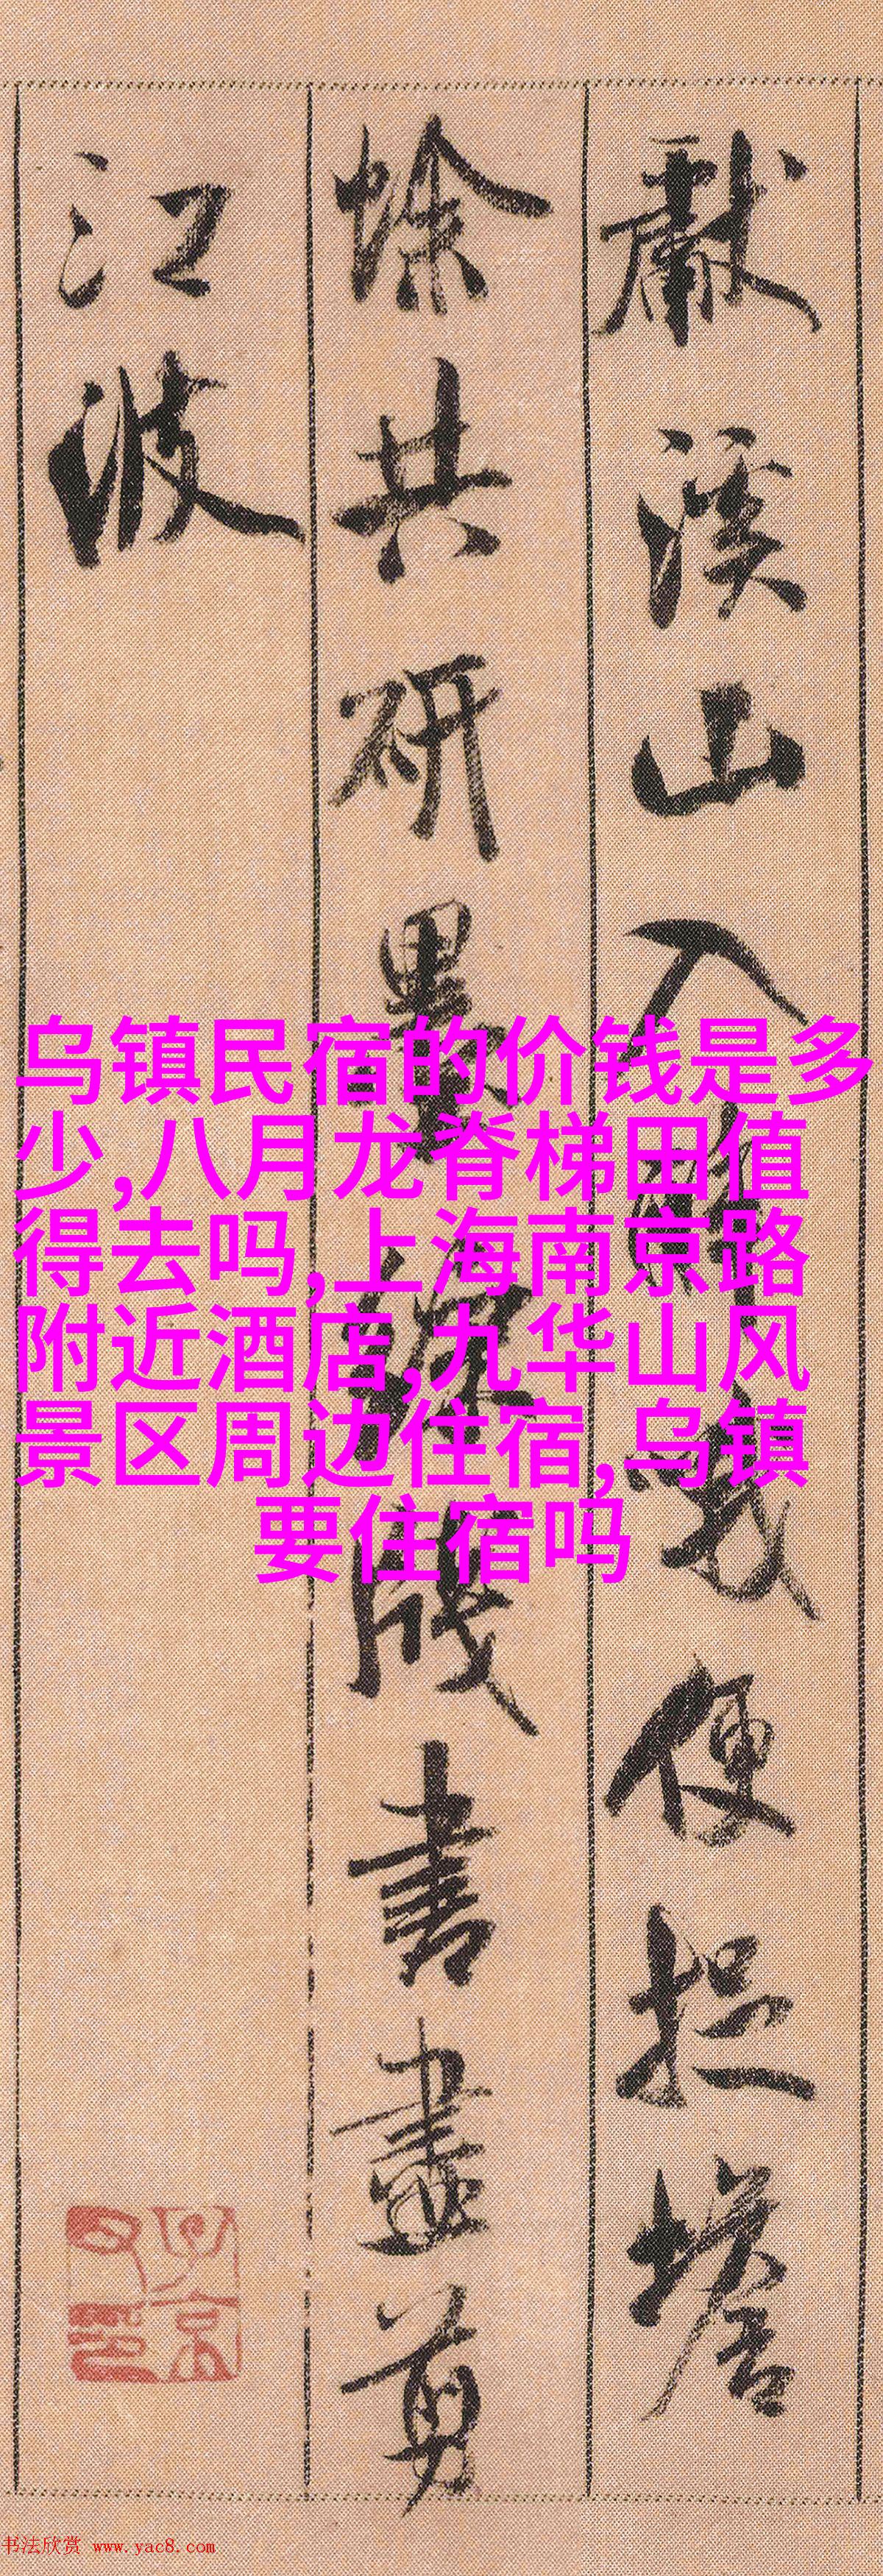 獻溪山入醉哦便捉蟾
蜍共研墨綵牋書盡剪
江波
乌镇民宿的价钱是多
少,八月龙脊梯田值
得去吗,上海南京路
附近酒店,九华山风
景区周边住宿,乌镇
要住宿吗
书法欣赏 www.yac8.com